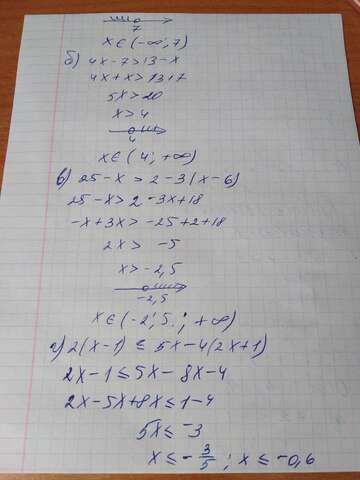 7
x ∈ (-∞; 7)
б) 4x - 7 > 13 - x
4x + x > 13 + 7
5x > 20
x > 4
4
x ∈ (4; +∞)
в) 25 - x > 2 - 3(x - 6)
25 - x > 2 - 3x + 18
-x + 3x > -25 + 2 + 18
2x > -5
x > -2,5
-2,5
x ∈ (-2,5; +∞)
г) 2(x - 1) ≤ 5x - 4(2x + 1)
2x - 1 ≤ 5x - 8x - 4
2x - 5x + 8x ≤ 1 - 4
5x ≤ -3
x ≤ -3/5; x ≤ -0,6